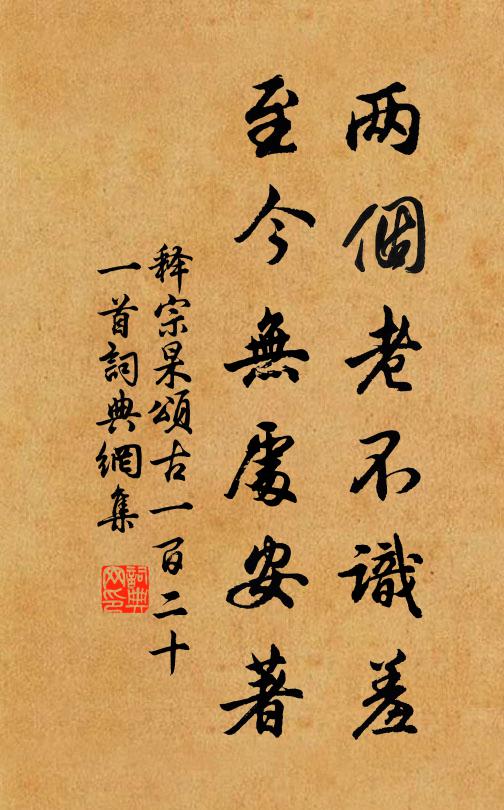 两個老不識羞
至今無處安著
释宗杲頌古一百二十
一首詞典網集
詞典網印